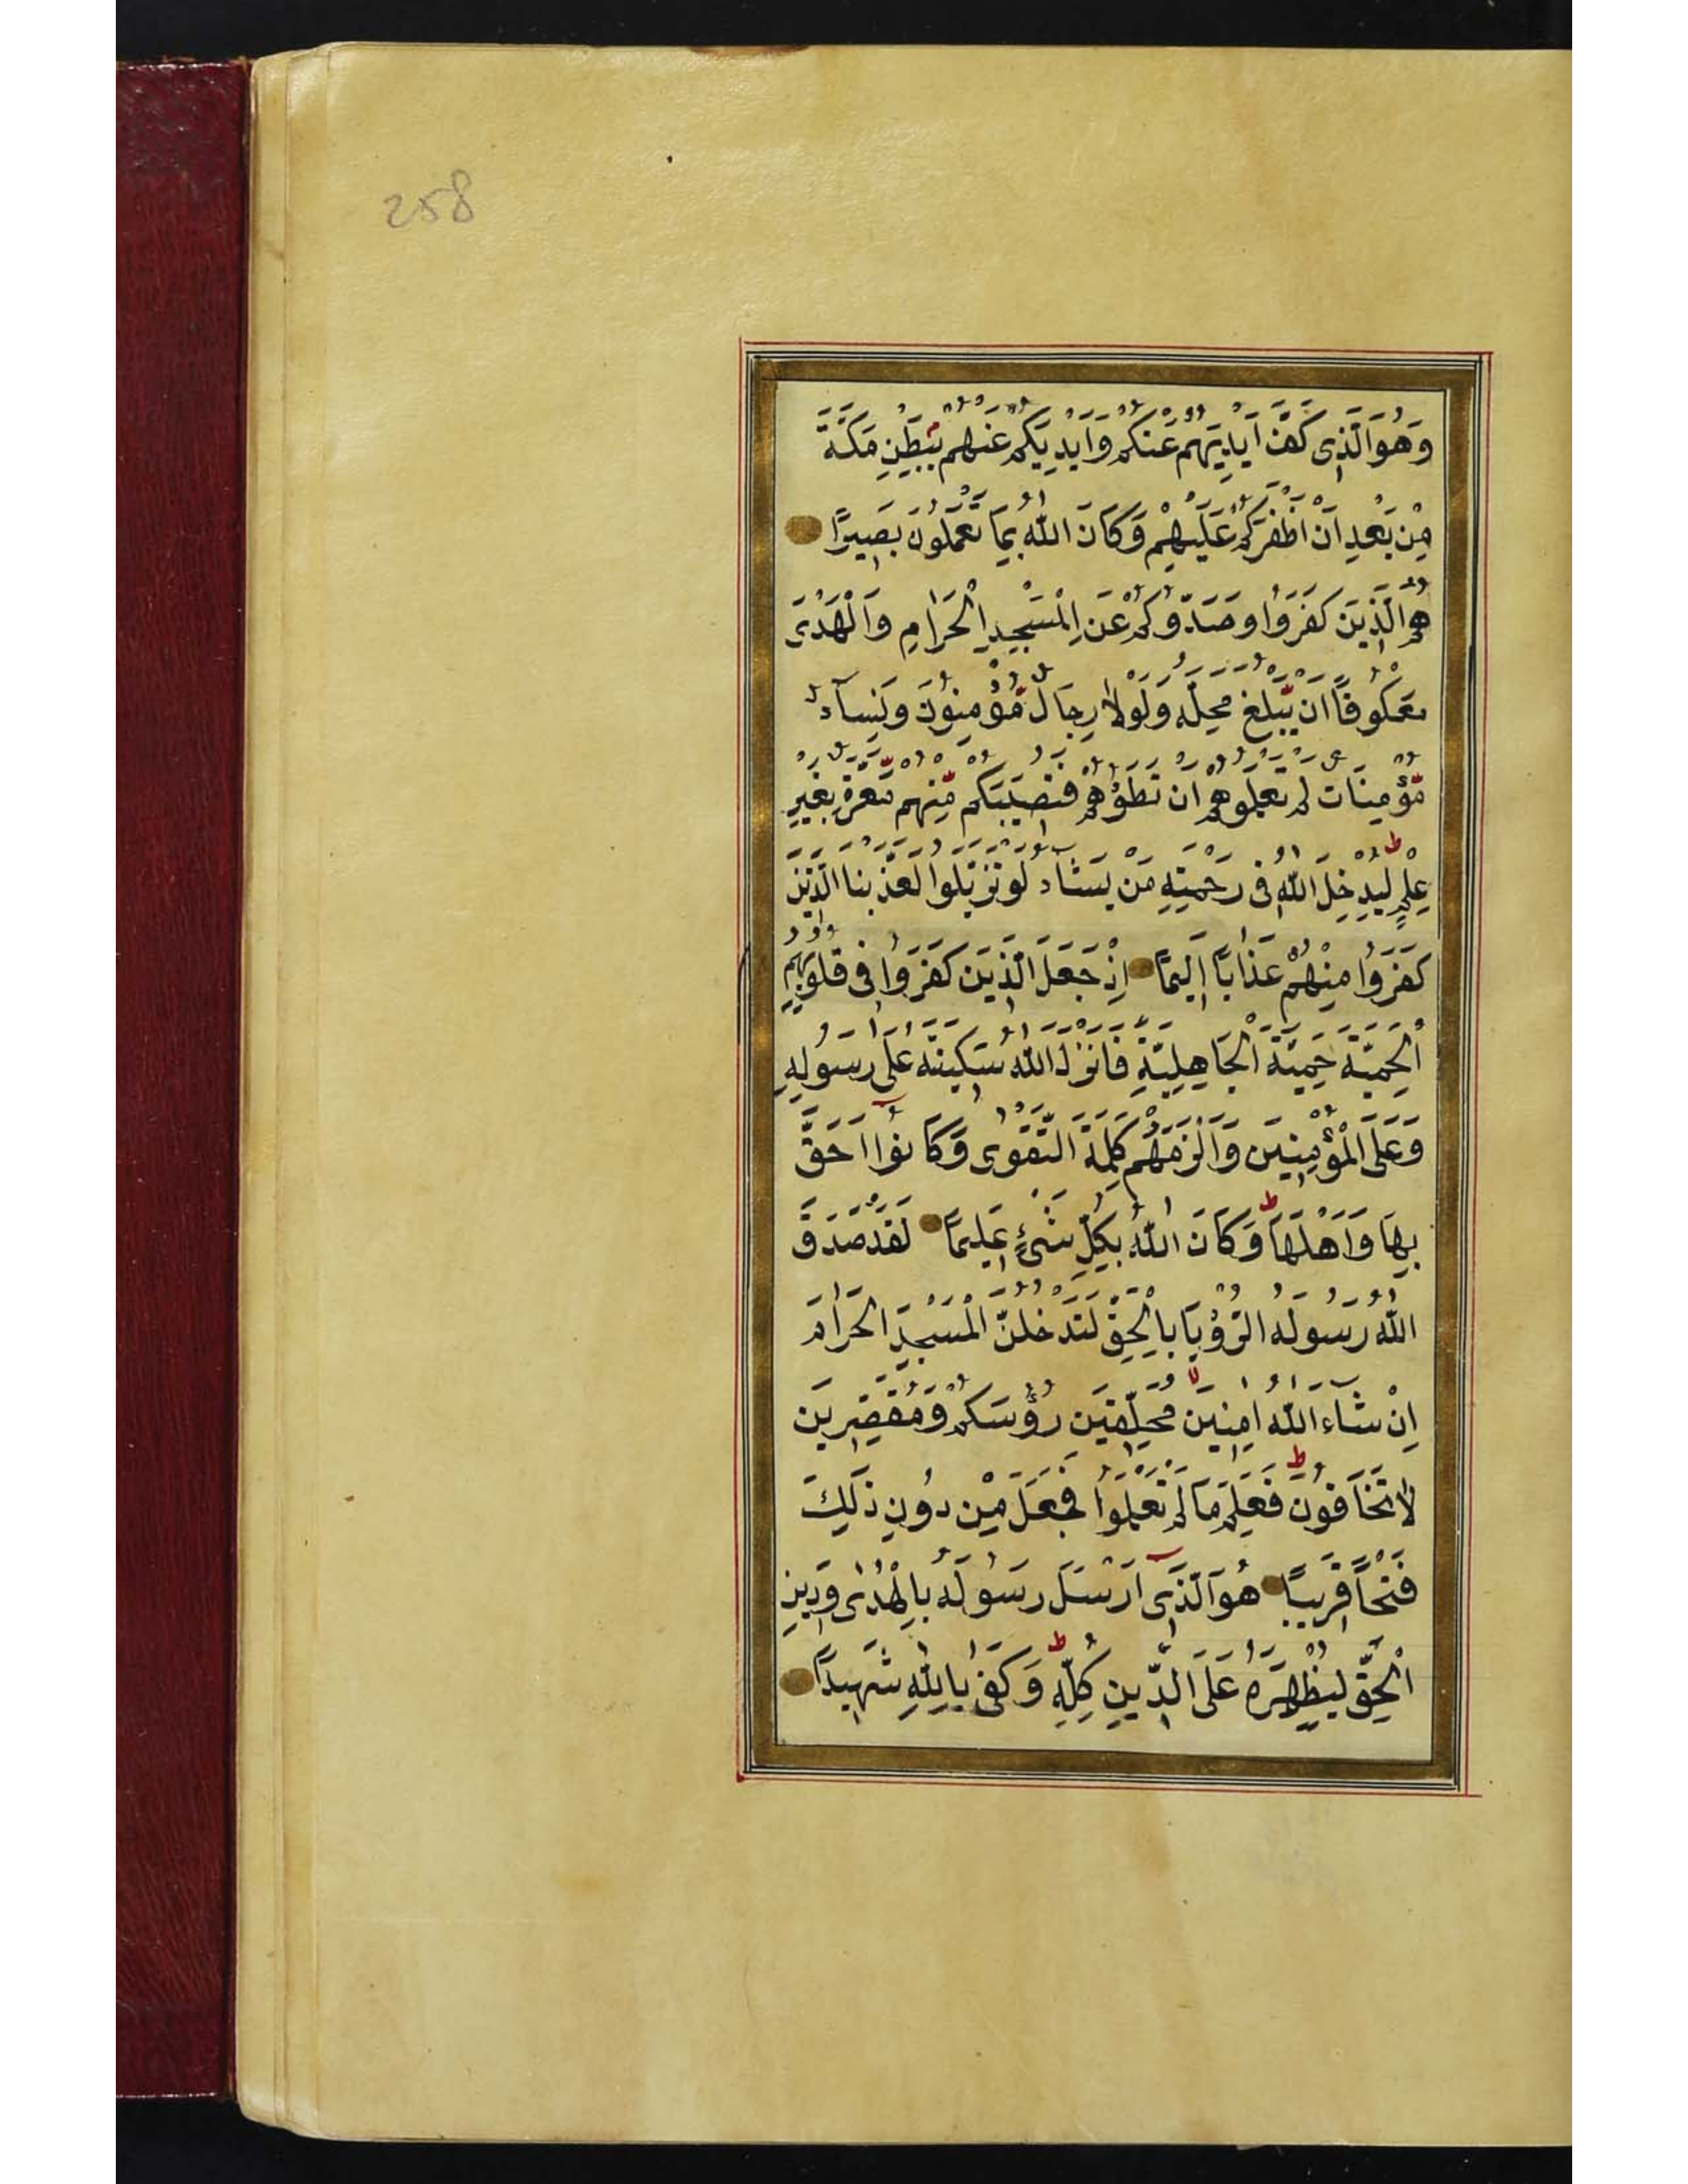 258
وَهُوَ الَّذِى كَفَّ اَيْدِيَهُمْ عَنْكُمْ وَاَيْدِيَكُمْ عَنْهُمْ بِبَطْنِ مَكَّةَ
مِنْ بَعْدِ اَنْ اَظْفَرَكُمْ عَلَيْهِمْ وَكَانَ اللّٰهُ بِمَا تَعْمَلُونَ بَصِيرًا
هُمُ الَّذِينَ كَفَرُوا وَصَدُّوكُمْ عَنِ الْمَسْجِدِ الْحَرَامِ وَالْهَدْىَ
مَعْكُوفًا اَنْ يَبْلُغَ مَحِلَّهُ وَلَوْلَا رِجَالٌ مُّؤْمِنُونَ وَنِسَآءٌ
مُّؤْمِنَاتٌ لَمْ تَعْلَمُوهُمْ اَنْ تَطَؤُهُمْ فَتُصِيبَكُمْ مِّنْهُمْ مَّعَرَّةٌ بِغَيْرِ
عِلْمٍ لِيُدْخِلَ اللّٰهُ فِى رَحْمَتِهِ مَنْ يَشَآءُ لَوْ تَزَيَّلُوا لَعَذَّبْنَا الَّذِينَ
كَفَرُوا مِنْهُمْ عَذَابًا اَلِيمًا اِذْ جَعَلَ الَّذِينَ كَفَرُوا فِى قُلُوبِهِمُ
الْحَمِيَّةَ حَمِيَّةَ الْجَاهِلِيَّةِ فَاَنْزَلَ اللّٰهُ سَكِينَتَهُ عَلٰى رَسُولِهِ
وَعَلَى الْمُؤْمِنِينَ وَاَلْزَمَهُمْ كَلِمَةَ التَّقْوٰى وَكَانُوٓا اَحَقَّ
بِهَا وَاَهْلَهَا وَكَانَ اللّٰهُ بِكُلِّ شَىْءٍ عَلِيمًا لَقَدْ صَدَقَ
اللّٰهُ رَسُولَهُ الرُّؤْيَا بِالْحَقِّ لَتَدْخُلُنَّ الْمَسْجِدَ الْحَرَامَ
اِنْ شَآءَ اللّٰهُ اٰمِنِينَ مُحَلِّقِينَ رُؤُسَكُمْ وَمُقَصِّرِينَ
لَا تَخَافُونَ فَعَلِمَ مَا لَمْ تَعْلَمُوا فَجَعَلَ مِنْ دُونِ ذٰلِكَ
فَتْحًا قَرِيبًا هُوَ الَّذِىٓ اَرْسَلَ رَسُولَهُ بِالْهُدٰى وَدِينِ
الْحَقِّ لِيُظْهِرَهُ عَلَى الدِّينِ كُلِّهِ وَكَفٰى بِاللّٰهِ شَهِيدًا